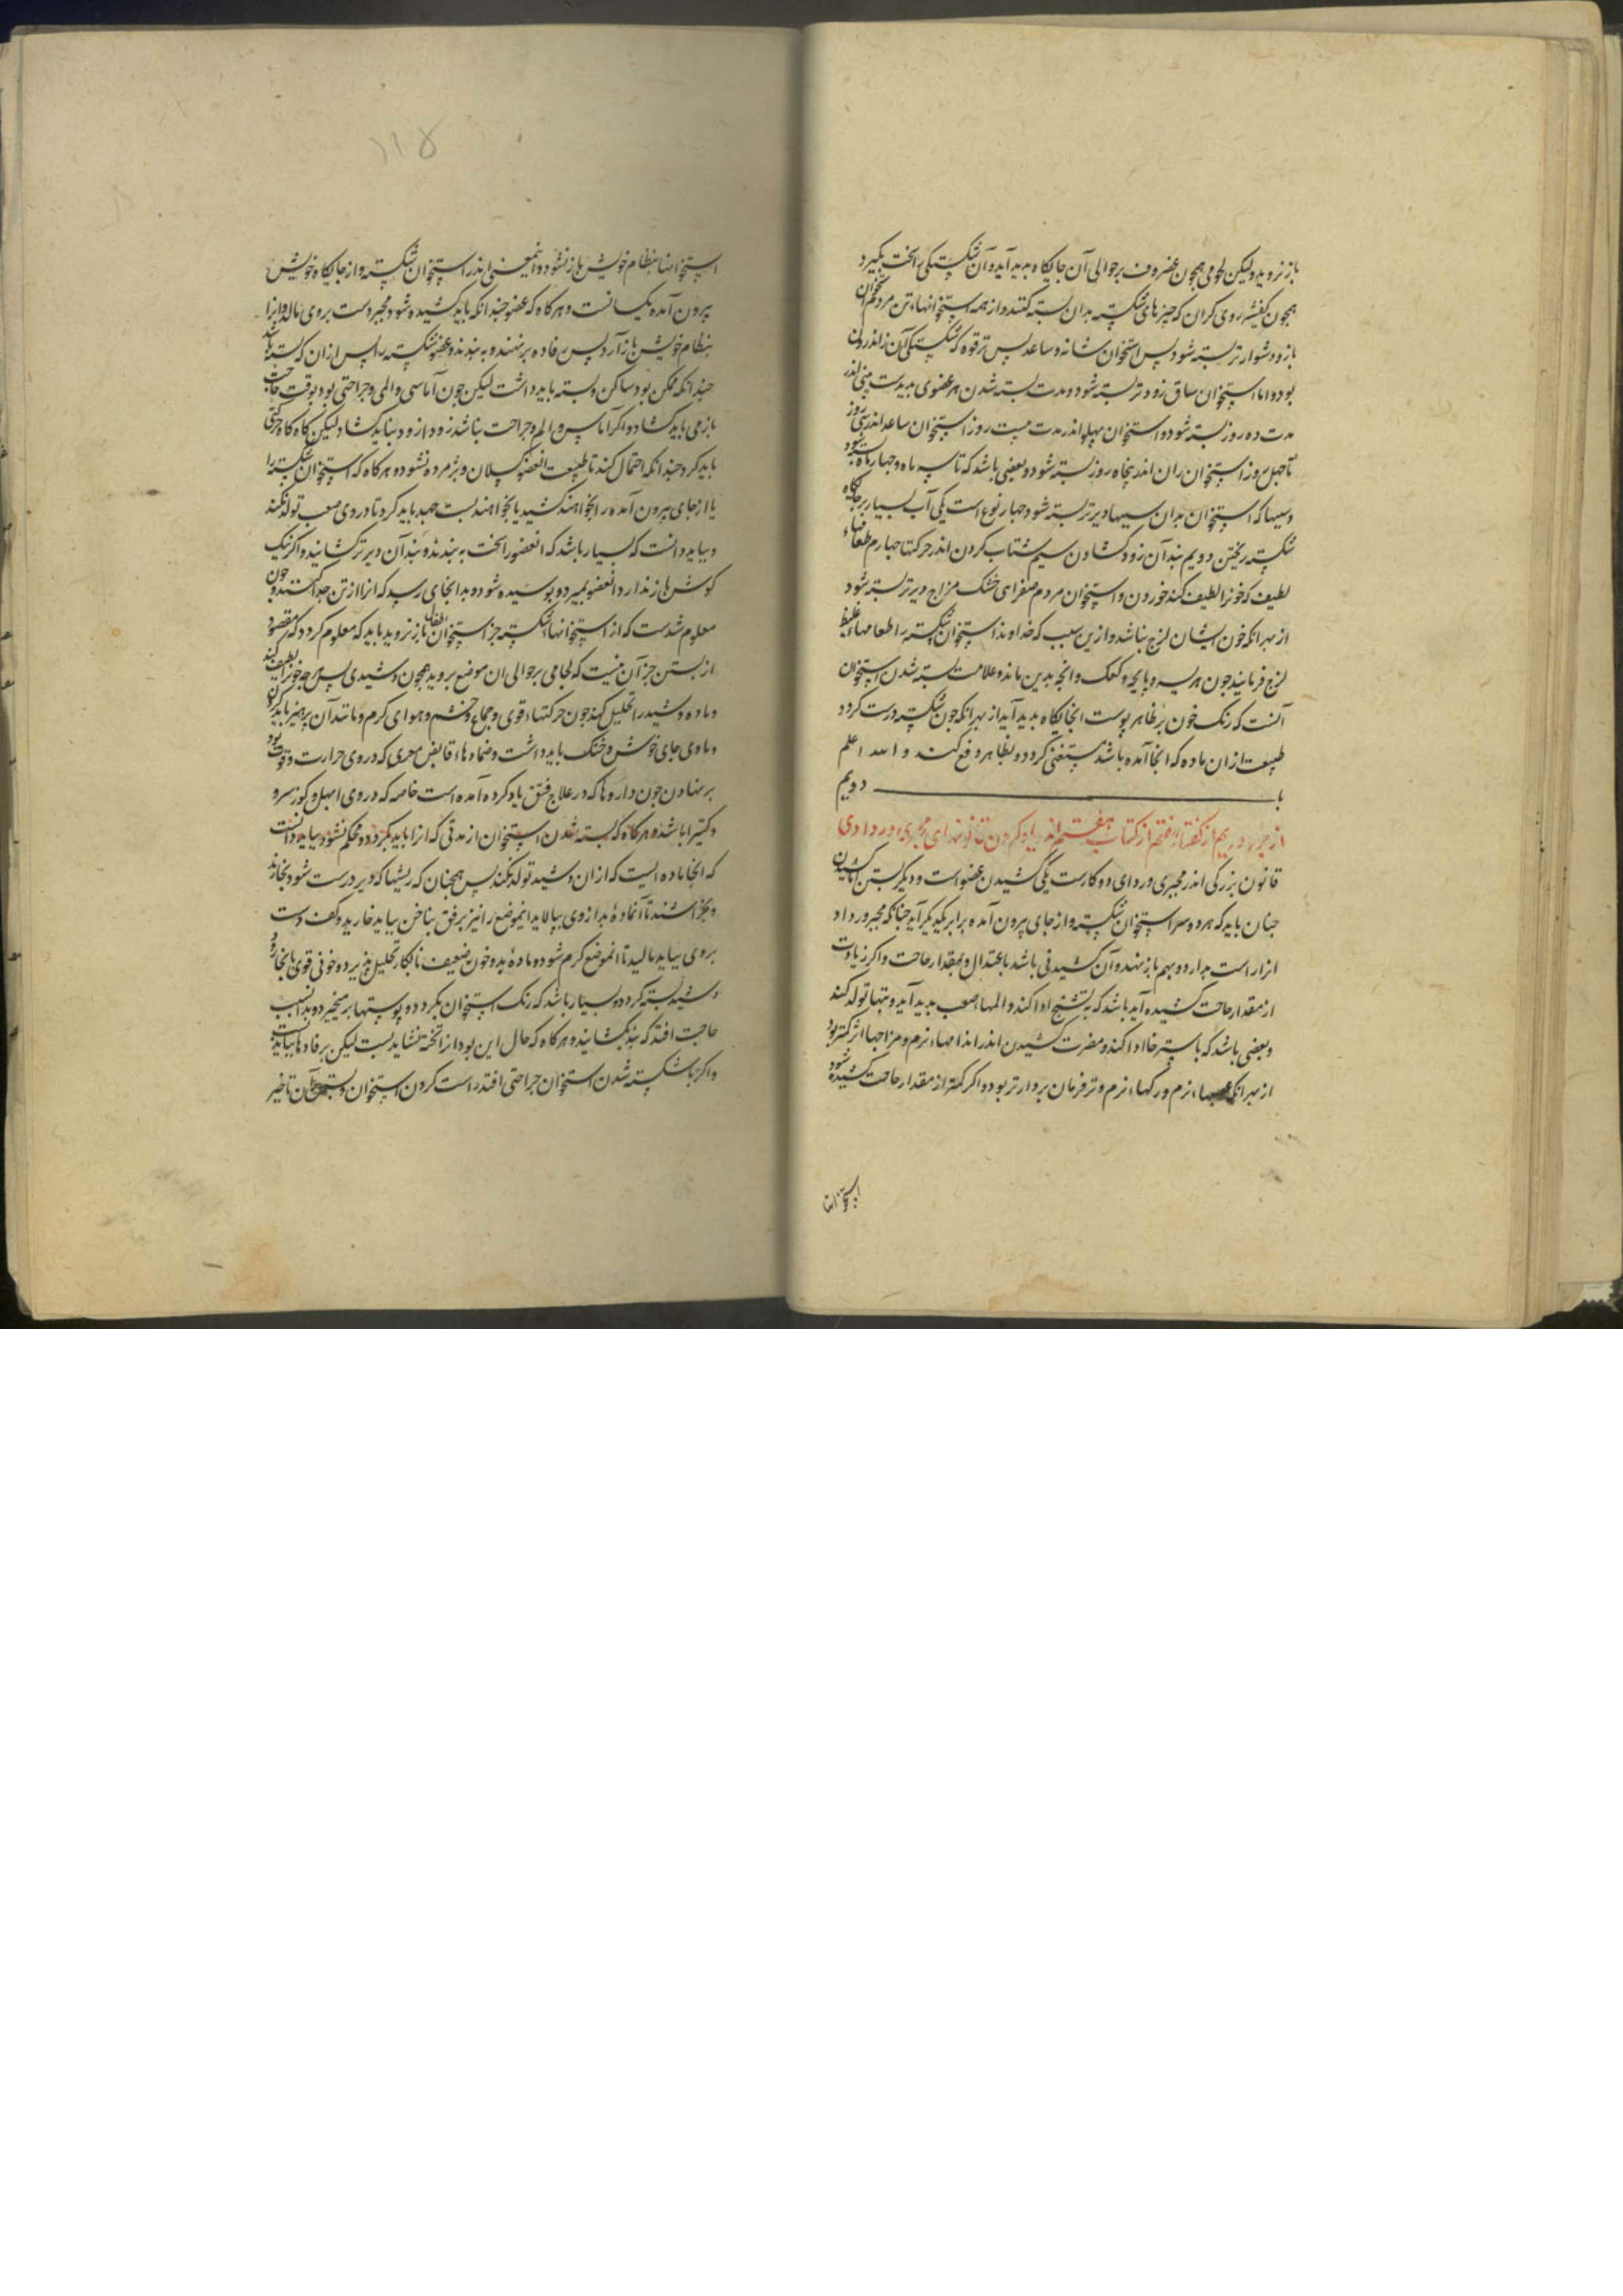 باز نروید ولیکن لحومی همچون غضروف بر حوالی آن جایکاه بدید آید و آن شکستکی را سخت بکیرد
همچون کفشیر روی کران که چیزهای شکسته بدان بسته کنند و از همه استخوانهاء تن مردم استخوان
بازو دشوارتر بسته شود پس استخوان شانه و ساعد پس ترقوه که شکستکی آن زاندرون
بود و اما استخوان ساق زودتر بسته شود و مدت بسته شدن هر عضوی بدیدست بینی اندر
مدت ده روز بسته شود و استخوان پهلو اندر مدت بیست روز استخوان ساعد اندر سی روز
تا چهل روز استخوان ران اندر پنجاه روز بسته شود و بعضی باشد که تا سه ماه و چهار ماه بسته شود
و سببها که استخوان بدان سببها دیرتر بسته شود چهار نوع است یکی آب بسیار بر جایکاه
شکسته ریختن دویم بند آن زود کشادن سیم شتاب کردن اندر حرکتها چهارم طعامهاء
لطیف که خونرا لطیف کند خوردن و استخوان مردم صفرای خشک مزاج دیرتر بسته شود
از بهر انکه خون ایشان لزج نباشد و ازین سبب که خداوند استخوان شکسته را طعامهاء غلیظ
لزج فرمایند چون هریسه و پاچه و کعک و انچه بدین ماند و علامت بسته شدن استخوان
آنست که رنک خون بر ظاهر پوست انجایکاه بدید آید از بهر انکه چون شکسته درست کردد
طبیعت از ان ماده که انجا آمده باشد مستغنی کردد و بظاهر دفع کند و الله اعلم
با دویم
از جزء دویم از کفتار هفتم از کتاب هفتم اندر یاد کردن قانونهای مجبری و ردادی
قانون بزرکی اندر مجبری و ردای دو کارست یکی کشیدن عضو است و دیکر بستن اما کشیدن
چنان باید که هر دو سر استخوان شکسته و از جای بیرون آمده برابر یکدیکر آید چنانکه مجبر و رداد
انرا راست بدارد و بهم باز نهد و آن کشیدنی باشد باعتدال و بمقدار حاجت و اکر زیادت
از مقدار حاجت کشیده آید باشد که بتشنج ادا کند و المهاء صعب بدید آید و تبها تولد کند
و بعضی باشد که باسترخا ادا کند و مضرت کشیدن اندر اندامهاء نرم و مزاجها اثر کمتر بود
از بهر انکه عصبهاء نرم و رکهاء نرم و تر فرمان بردارتر بود و اکر کمتر از مقدار حاجت کشیده شود
استخوانها
۱۱۸
استخوانها بنظام خویش باز نشود و اینمعنی اندر استخوان شکسته و از جایکاه خویش
بیرون آمده یکسانست و هرکاه که عضو چندانکه باید کشیده شود مجبر دست بروی مالد و انرا
بنظام خویش باز آرد پس رفاده بر نهند و ببندند و عضو شکسته را پس از ان که بسته باشد
چندانکه ممکن بود ساکن و بسته باید داشت لیکن چون آماسی و المی و جراحتی بود بوقت حاجت
باز می باید کشاد و اکر آماس و الم و جراحت نباشد زود از زود نباید کشاد لیکن کاه کاه حرکتی
باید کرد چندانکه احتمال کند تا طبیعت انعضو کسلان و پژمرده نشود و هرکاه که استخوان شکسته را
یا از جای بیرون آمده را بخواهند کشید یا بخواهند بست جهد باید کرد تا دردی صعب تولد نکند
و بباید دانست که بسیار باشد که انعضو را سخت ببندند و بند آن دیرتر کشایند و اکر نیک
کوش باز ندارد انعضو بمیرد و پوسیده شود و بدانجای رسد که انرا از تن جدا کنند و چون
معلوم شدست که از استخوانهاء شکسته جز استخوان اطفال باز نروید باید که معلوم کردد که مقصود
از بستن جز آن نیست که لحامی بر حوالی ان موضع بروید همچون وشیدی پس هرچه خونرا لطیف کند
و ماده وشید را تحلیل کند چون حرکتهاء قوی و جماع و خشم و هوای کرم و مانند آن پرهیز باید کرد
و ماوی جای خوش و خنک باید داشت و ضمادهاء قابض مغری که در وی حرارت و قوت بود
بر نهادن چون داروها که در علاج فتق یاد کرده آمده است خاصه که در وی ابهل و کوز سرو
و کتیرا باشد و هرکاه که بسته شدن استخوان از مدتی که انرا باید بکردد و محکم نشود بباید دانست
که انجا ماده ایست که از ان وشید تولد نکند پس همچنان که ریشها که دیر درست شود بخارند
و بخراشند تا آنماده بد از وی بپالاید اینموضع را نیز برفق بناخن بباید خارید و بکف دست
بروی بباید مالید تا انموضع کرم شود و مادهٔ بد و خون ضعیف نابکار تحلیل پذیرد و خونی قوی بانجا رود
وشید بسته کردد و بسیار باشد که رنک استخوان بکردد و پوستها بر میخیزد و بدانسبب
حاجت افتد که بند بکشایند و هرکاه که حال این بود انرا تخته نشاید بست لیکن برفادها بباید بست
و اکر با شکسته شدن استخوان جراحتی افتد راست کردن استخوان و بستن آن تاخیر